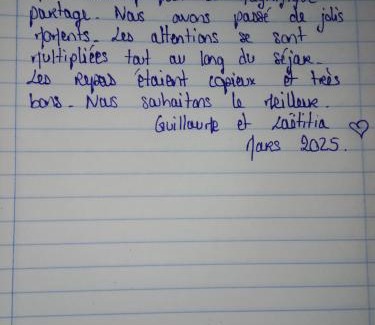 partage. Nous avons passé de jolis
moments. Les attentions se sont
multipliées tout au long du séjour.
Les repas étaient copieux et très
bons. Nous souhaitons le meilleur.
Guillaume et Laëtitia ♡
Mars 2025.